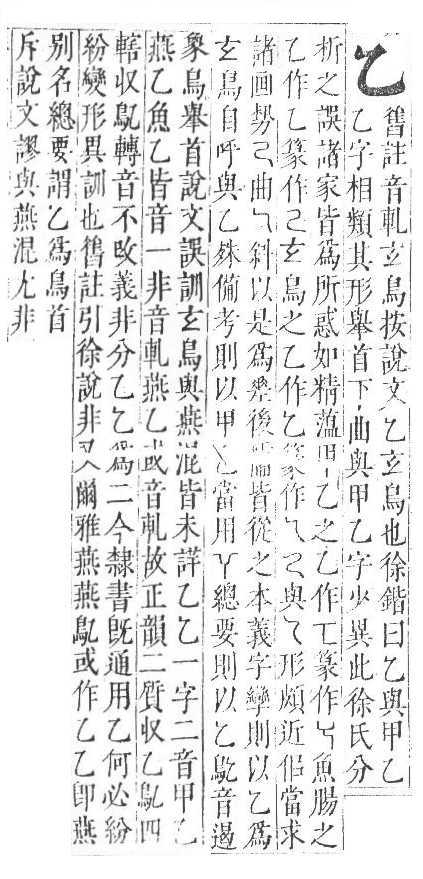 乙
舊註音軋玄鳥按說文乙玄鳥也徐鍇曰乙與甲乙
乙字相類其形舉首下曲與甲乙字少異此徐氏分
析之誤諸家皆爲所惑如精薀甲乙之乙作篆作魚腸之
乙作乙篆作玄鳥之乙作乙篆作與乙形頗近但當求
諸画勢曲斜以是爲槼後論皆從之本義字孿則以乙爲
玄鳥自呼與乙殊備考則以甲乙當用丫總要則以乙鳦音遏
象鳥舉首說文誤訓玄鳥與燕混皆未詳乙乙一字二音甲乙
燕乙魚乙皆音一非音軋燕乙或音軋故正韻二質收乙鳦四
轄収鳦轉音不攺義非分乙乙爲二今隸書旣通用乙何必紛
紛變形異訓也舊註引徐說非又爾雅燕燕鳦或作乙乙卽燕
別名總要謂乙爲鳥首
斥說文謬與燕混尤非